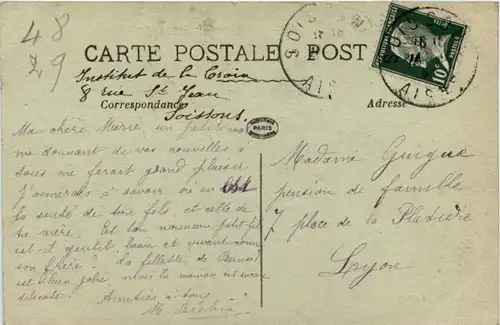 48
29
CARTE POSTALE
POST
SOISSONS
AISNE
10c
Institut de la Croix
8 rue St Jean
Soissons
Correspondance
Adresse
PARIS
Ma chère Marie, un petit mot
me donnant de vos nouvelles à
tous me ferait grand plaisir
J'aimerais à savoir où en est
la santé de ton fils, et celle de
ta mère. Et ton nouveau petit-fils
est-il gentil beau et vivant comme
son frère? La fillette de Bernard
est bien jolie, mais la maman est encore
délicate. Amitiés à tous
M.
Madame
pension de famille
7 place de la Platière
Lyon